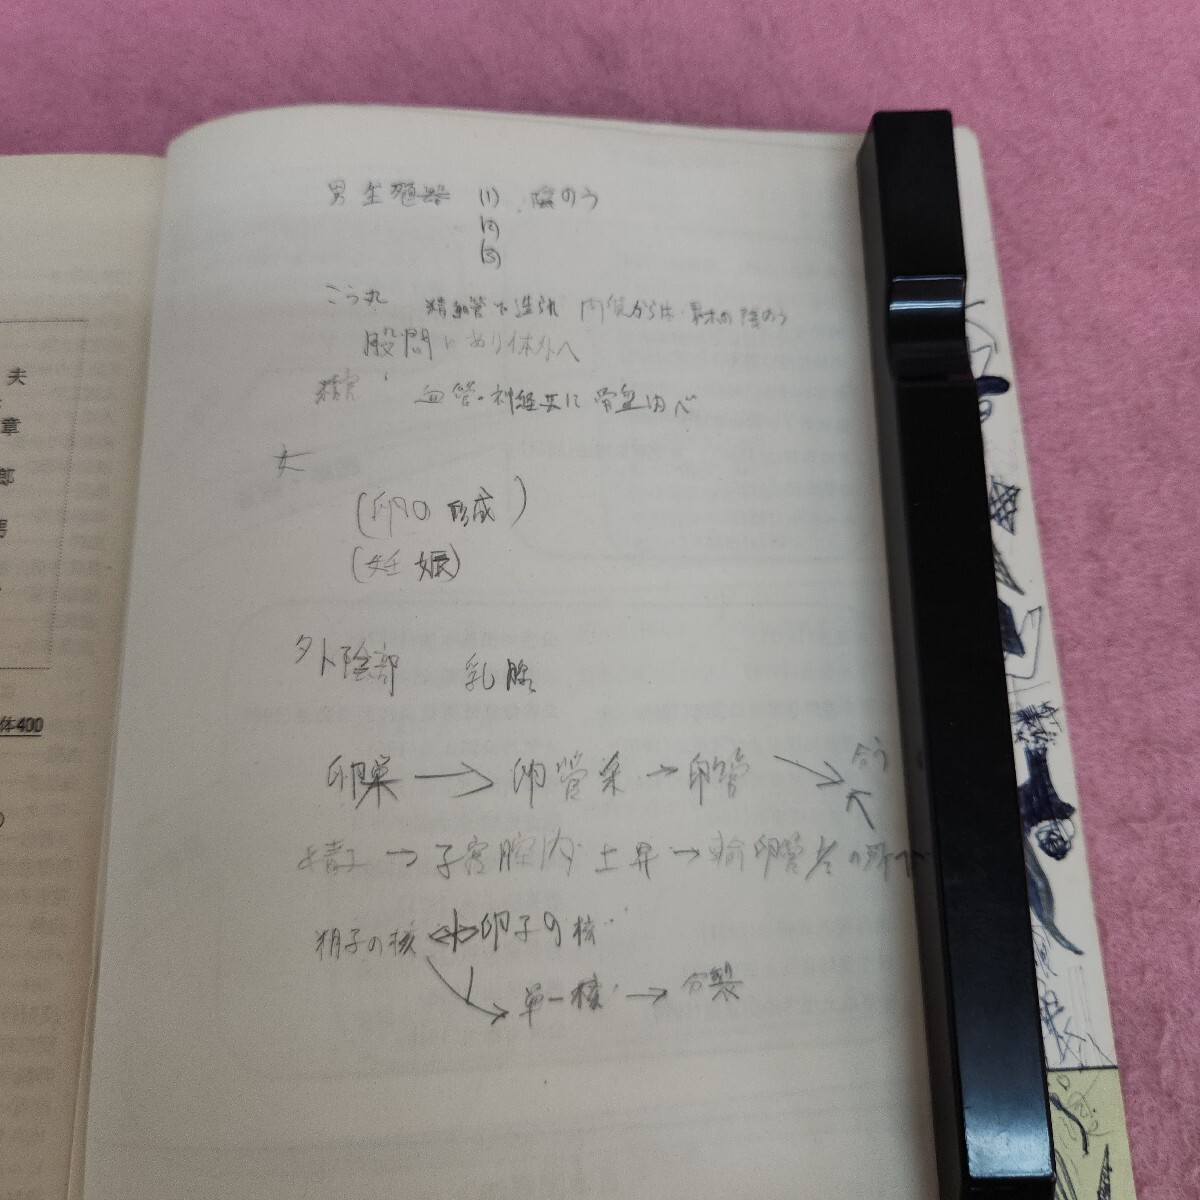 夫
章
郎
男
体400
男 生殖器 (1) 陰のう
(2)
(3)
こう丸 精細管で造られ
股間にあり体外へ
血管・神経共に骨盤内へ
女
(卵の形成)
(妊娠)
外陰部 乳腺
卵巣 → 卵管采 → 卵管 → 合う
精子 → 子宮腔内 上昇 → 輸卵管
精子の核 ↔ 卵子の核
単一核 → 分裂